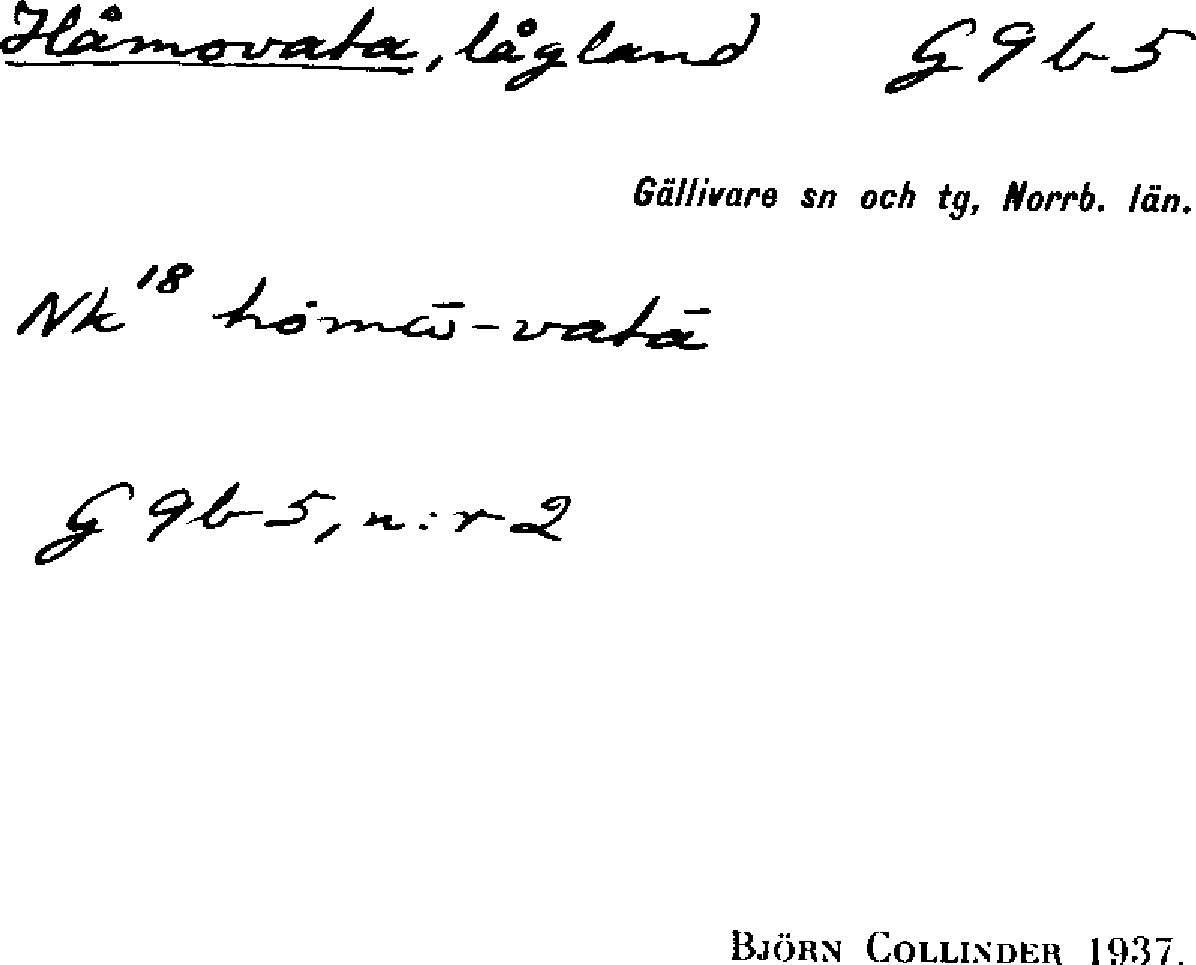 Håmovata, lågland G9b5
Gällivare sn och tg, Norrb. län.
Nk¹⁸ hȯmɷ̄-vatā
G9b5, n:r 2
BJÖRN COLLINDER 1937.